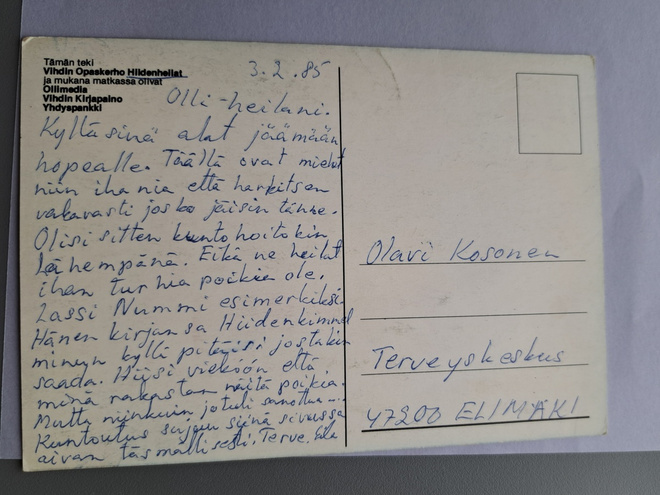 Tämän teki
Vihdin Opaskerho Hiidenheilat
ja mukana matkassa olivat
Ollimedia
Vihdin Kirjapaino
Yhdyspankki
3.2.85
Olli-heilani.
Kyllä sinä alat jäämään
hopealle. Täällä ovat miehet
niin ihania että harkitsen
vakavasti josko jäisin tänne.
Olisi sitten kuntohoitokin
lähempänä. Eikä ne heilat
ihan turhia poikia ole.
Lassi Nummi esimerkiksi.
Hänen kirjansa Hiidenkimmel
minun kyllä pitäisi jostakin
saada. Hiisi vieköön että
minä rakastan näitä poikia.
Mutta niinkuin jo tuli sanottua...
Kuntoutus sujuu siinä sivussa
aivan täsmällisesti. Terve.
Olavi Kosonen
Terveyskeskus
47200 ELIMÄKI